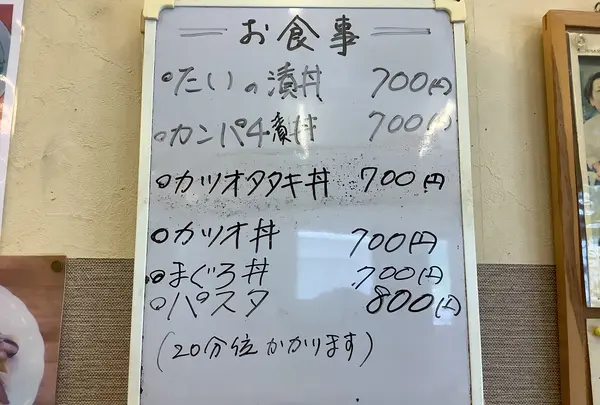 お食事
たいの漬丼 700円
カンパチ漬丼 700円
カツオタタキ丼 700円
カツオ丼 700円
まぐろ丼 700円
パスタ 800円
(20分位かかります)